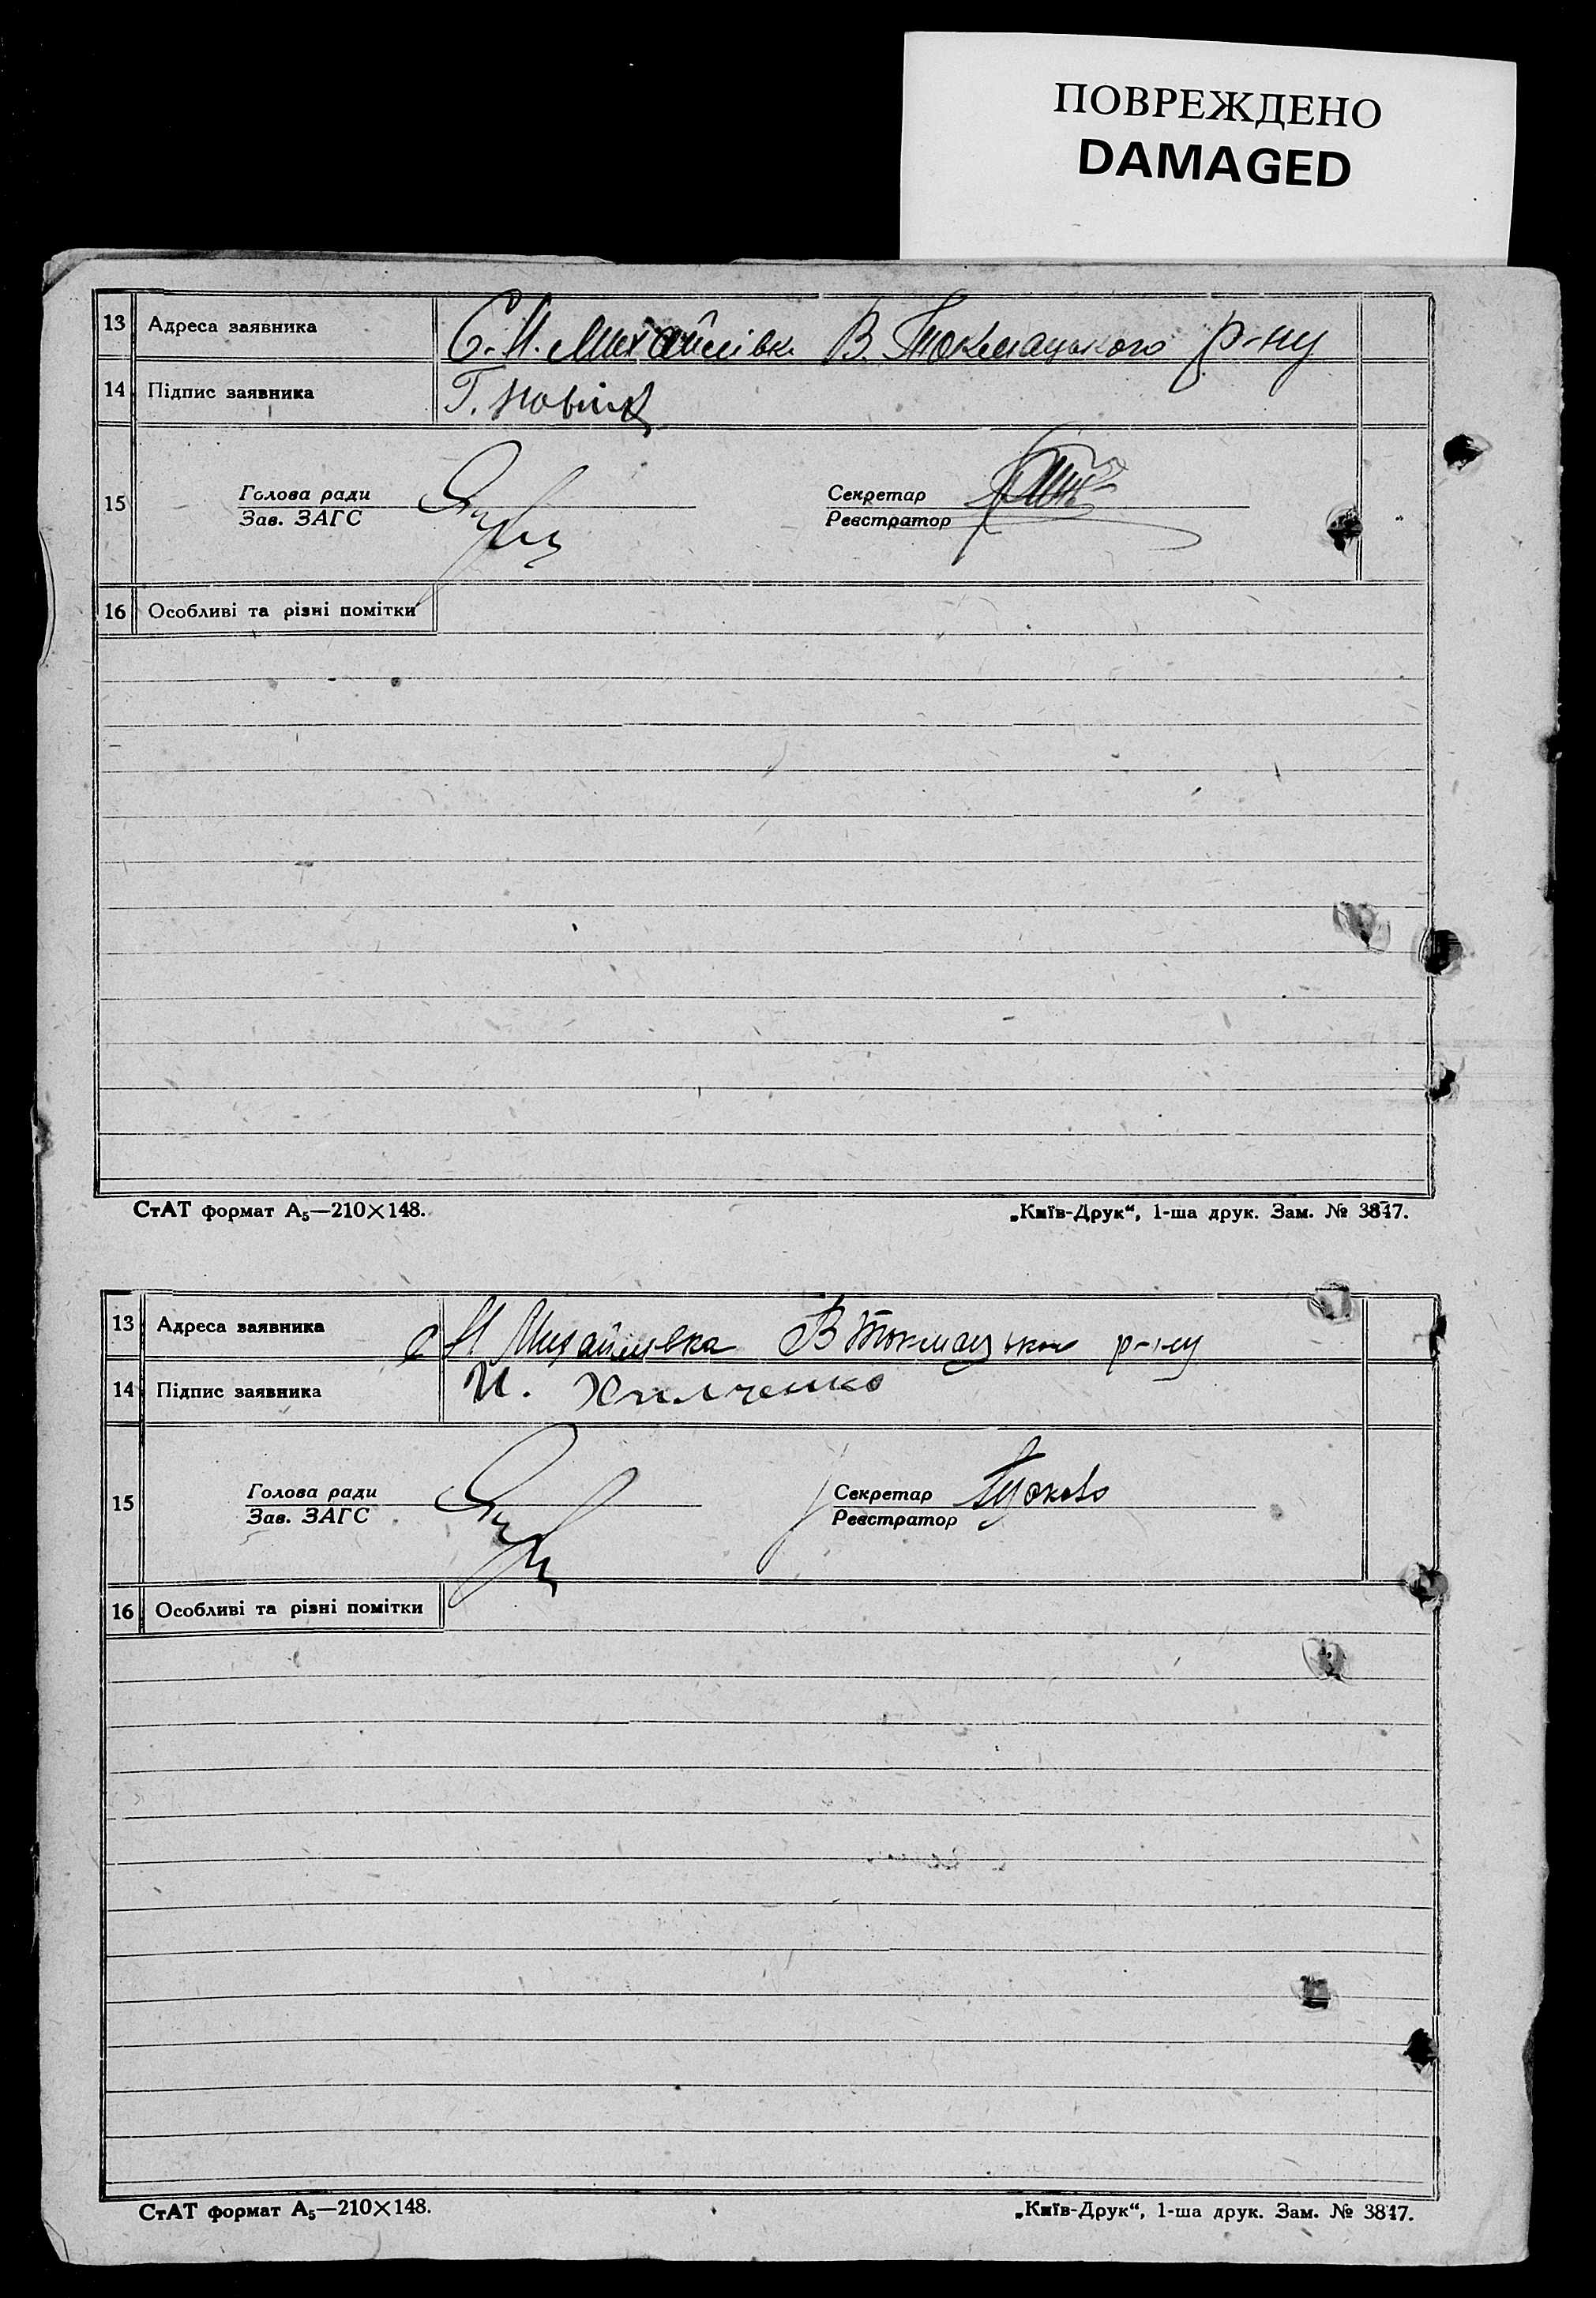 ПОВРЕЖДЕНО
DAMAGED
13 Адреса заявника С. Н. Михайлівк. В. Токмацького р-ну
14 Підпис заявника Г. Новік
15 Голова ради Секретар
Зав. ЗАГС Реєстратор
16 Особливі та різні помітки
СтАТ формат А5—210×148. „Київ-Друк“, 1-ша друк. Зам. № 3847.
13 Адреса заявника с Н Михайлівка В Токмацького р-ну
14 Підпис заявника И. Хилченко
15 Голова ради Секретар
Зав. ЗАГС Реєстратор
16 Особливі та різні помітки
СтАТ формат А5—210×148. „Київ-Друк“, 1-ша друк. Зам. № 3847.